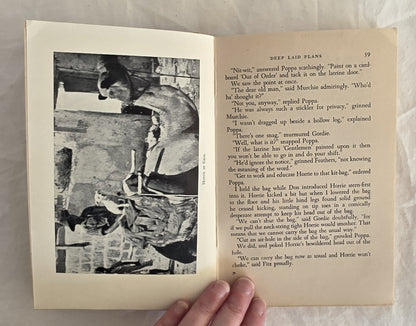 DEEP LAID PLANS 59
"Nit-wit," answered Poppa scathingly. "Paint on a card-
board 'Out of Order' and tack it on the latrine door."
We saw the point at once.
"The dear old man," said Murchie admiringly. "Who'd
ha' thought it?"
"Not you, anyway," replied Poppa.
"He was always such a stickler for privacy," grinned
Murchie.
"I wasn't dragged up beside a hollow log," explained
Poppa.
"There's one snag," murmured Gordie.
"Well, what is it?" snapped Poppa.
"If the latrine has 'Gentlemen' painted upon it then
you won't be able to go in and do your shift."
"He'd ignore the notice," grinned Feathers, "not knowing
the meaning of the word."
"Get to work and educate Horrie to that kit-bag," ordered
Poppa.
I hold the bag while Don introduced Horrie stern-first
into it. Horrie kicked a bit but when I lowered the bag
to the floor and his little hind legs found solid ground
he ceased kicking, standing on tip toes in a comically
desperate attempt to keep his head out of the bag.
"We can't shut the bag," said Gordie doubtfully, "for
if we pull the neck-string tight Horrie would smother. That
means that we cannot carry the bag the usual way."
"Cut an air-hole in the side of the bag," growled Poppa.
We did, and poked Horrie's bewildered head out of the
hole.
"We can carry the bag now as usual and Horrie won't
choke," said Fitz proudly.